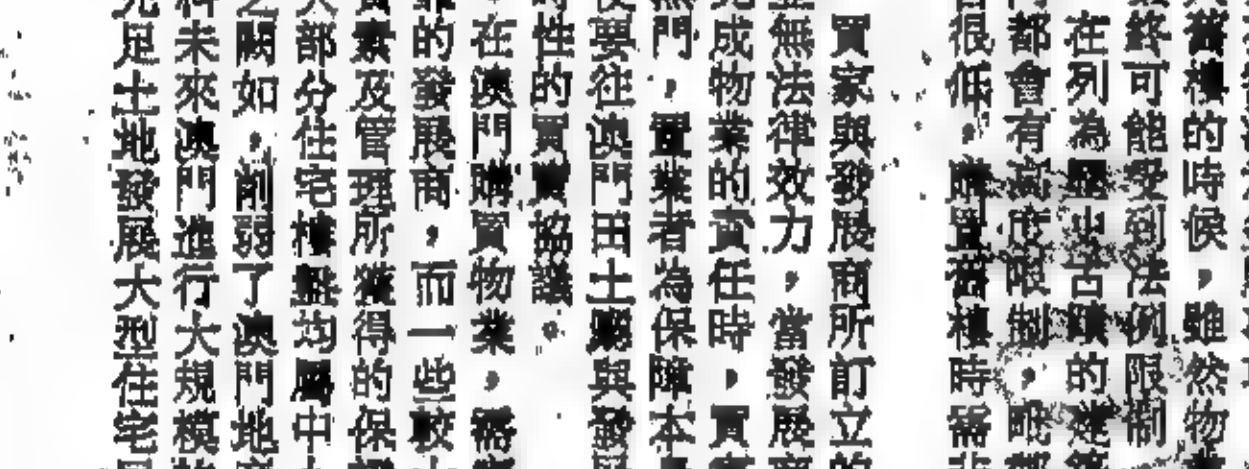 舊樓的時候，雖然物
終可能受到法例限制
在列為歷史古蹟的建築
都會有高度限制，
很低，購置舊樓時需
買家與發展商所訂立的
無法律效力，當發展商
成物業的責任時，買
門，置業者為保障本
要往澳門田土廳與發
性的買賣協議。
在澳門購買物業，需
的發展商，而一些較
素及管理所獲得的保
部分住宅樓盤均屬中
之闕如，削弱了澳門地
科未來澳門進行大規模
足土地發展大型住宅